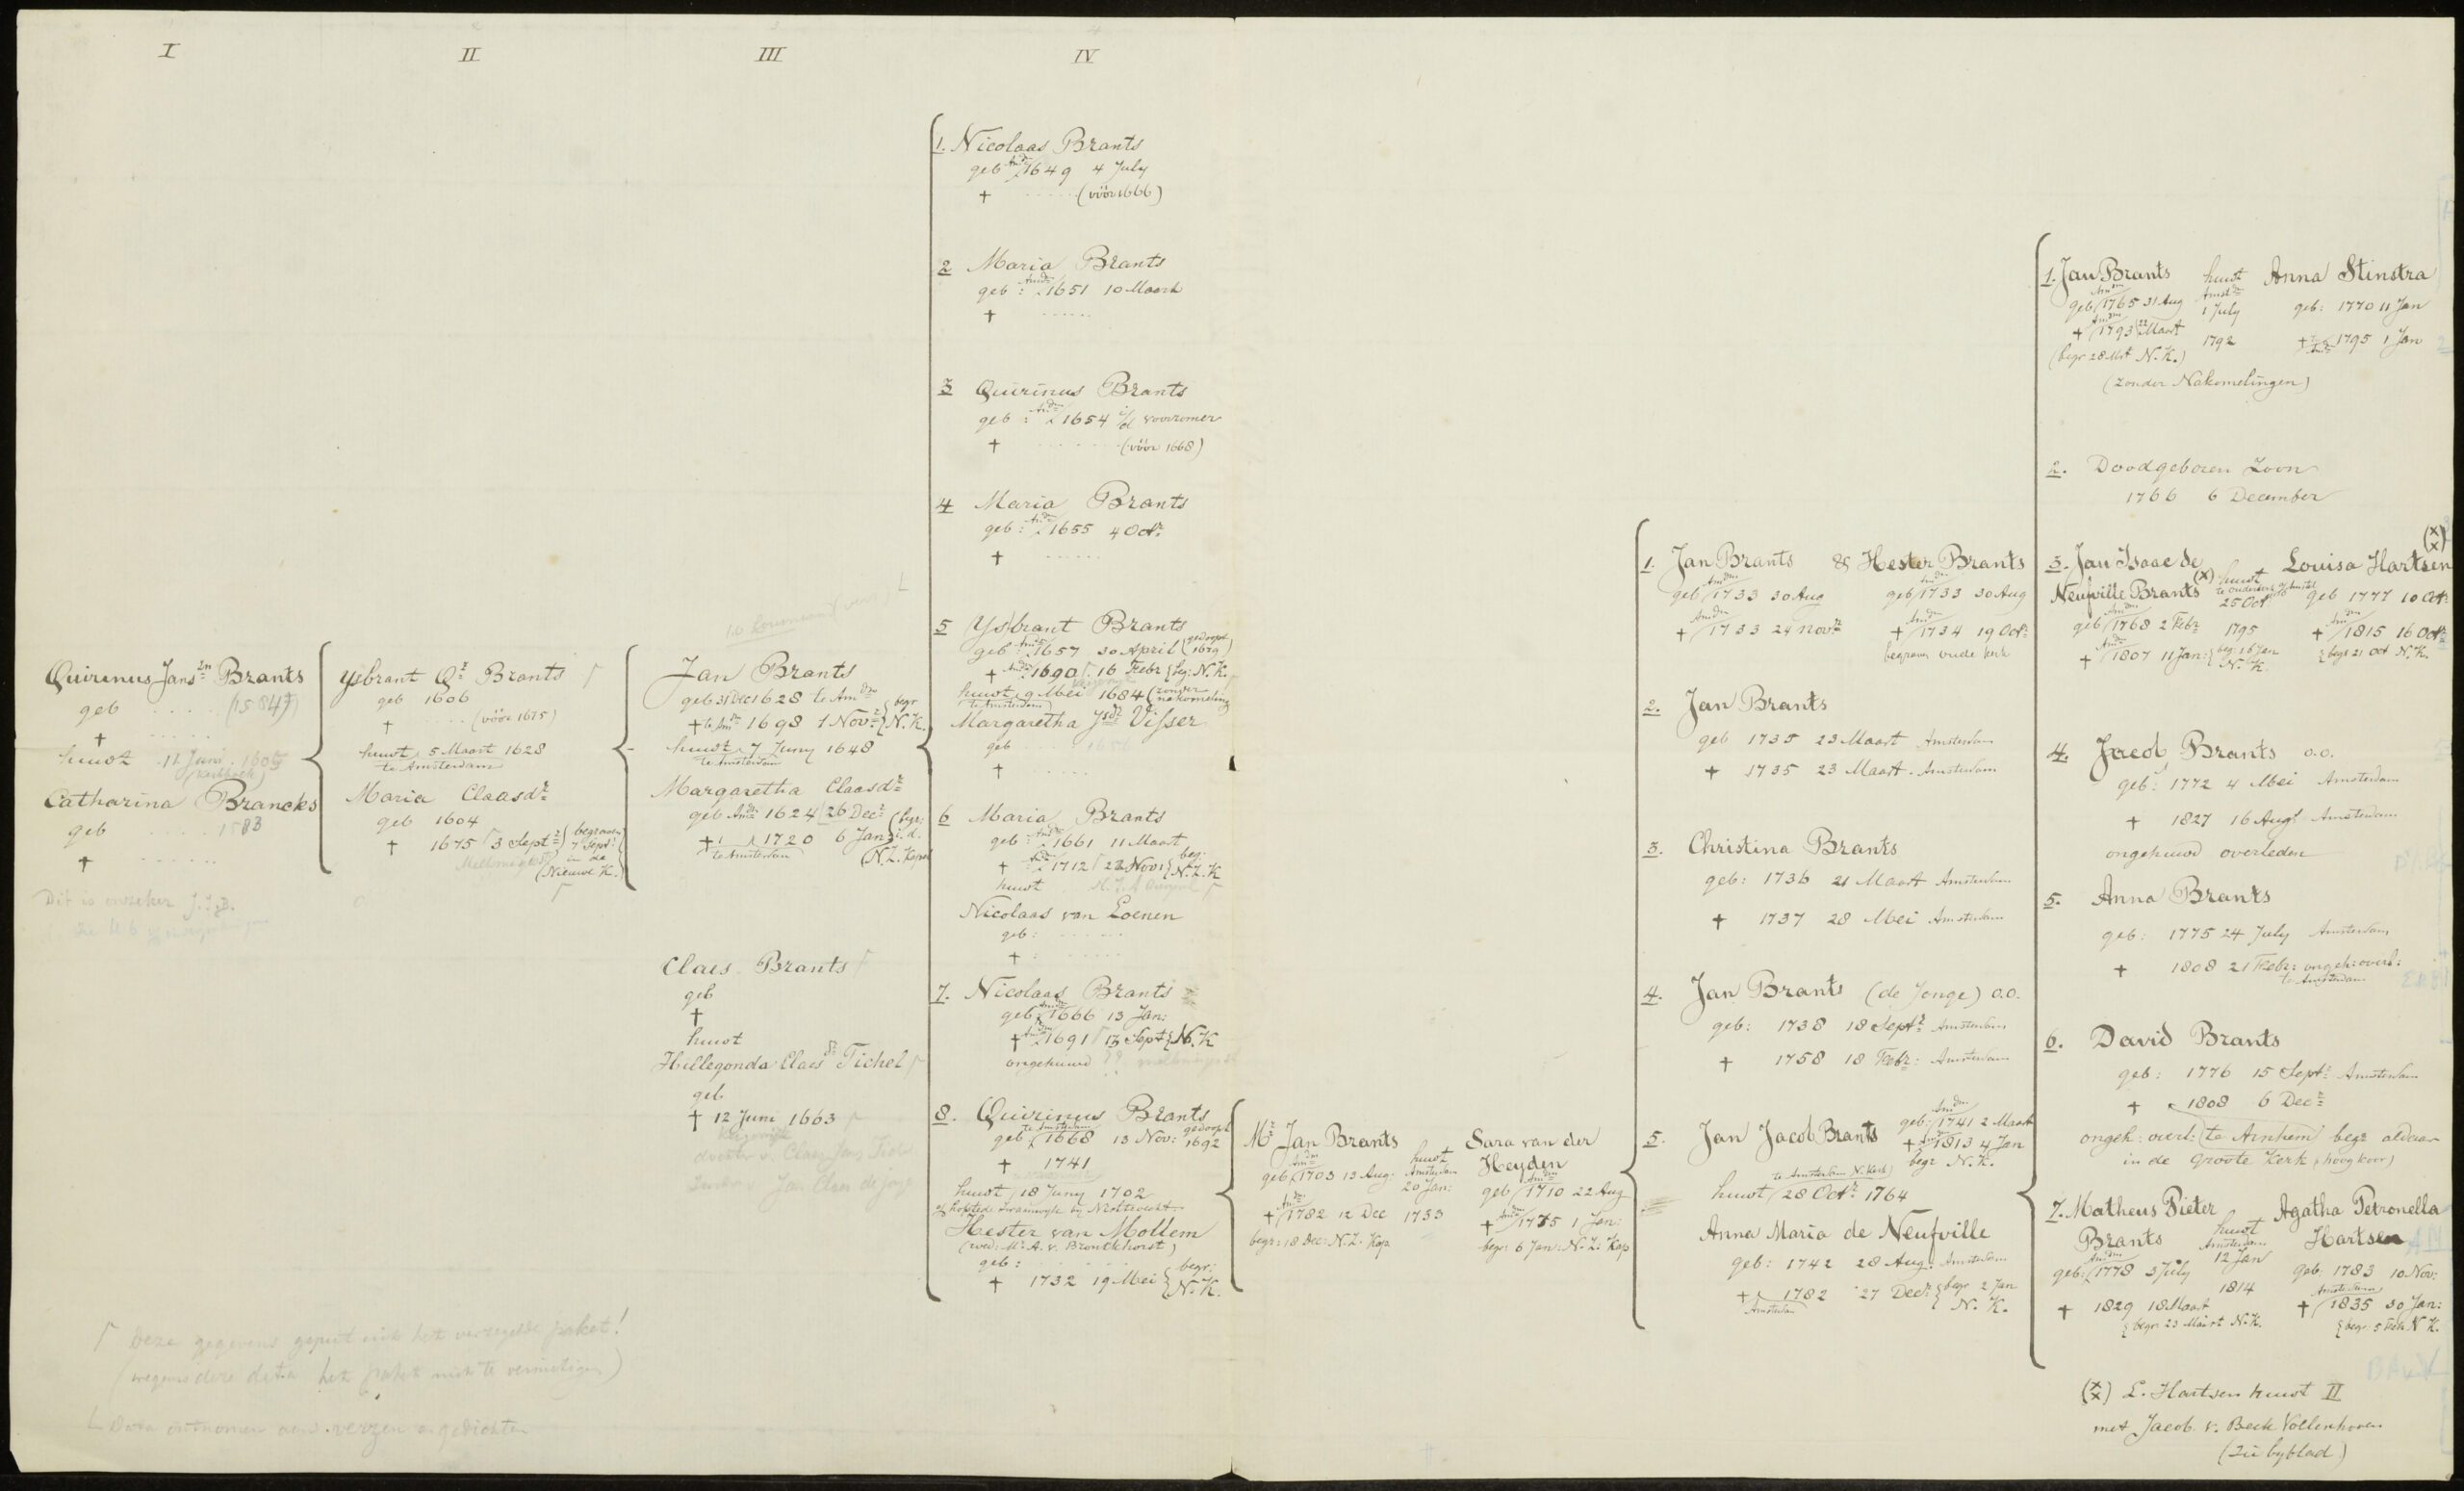 I
II
III
IV
Quirinus Jans zn Brants
geb . . . . (1584?)
† . . . . .
huwt 11 Juni
Catharina Branckes
geb . . . . 1583
† . . . . . .
Dit is onzeker J.I.B.
Ysbrant Qz Brants
geb 1606
† . . (vöör 1675)
huwt 5 Maart 1628
te Amsterdam
Maria Claasdr
geb 1604
† 1675 3 Septr (begraven 7 Sept: in de Nieuwe K.)
Jan Brants
geb 31 Dec 1628 te Amdm
† te Amdm 1698 1 Novr {begr N.K.
huwt 7 Juny 1648
te Amsterdam
Margaretha Claasdr
geb Amdm 1624 26 Decr
† 1720 6 Jan {begr: i.d. N.Z. Kapel
te Amsterdam
Claes Brants
geb
†
huwt
Hillegonda Claesdr Tichel
geb
† 12 Juni 1663
1. Nicolaas Brants
geb Amdm 1649 4 July
† . . . . . (vöör 1666)
2 Maria Brants
geb : Amdm 1651 10 Maart
† . . . . .
3 Quirinus Brants
geb : Amdm 1654 i/d voorzomer
† . . . . . (vöór 1668)
4 Maria Brants
geb : Amdm 1655 4 Octr.
† . . . . .
5 Ysbrant Brants
geb : Amdm 1657 30 April (gedoopt 1679)
† Amdm 1690 16 Febr {beg: N.K.
huwt 9 Mei 1684 (zonder nakomeling)
te Amsterdam
Margaretha Ysdr Visser
geb
† . . . . .
6 Maria Brants
geb : Amdm 1661 11 Maart
† Amdm 1712 22 Nov: {beg: N.Z.K
huwt
Nicolaas van Loenen
geb : . . . . .
† : . . . . .
7. Nicolaas Brants
geb Amdm 1666 13 Jan:
† Amdm 1691 13 Sept {N.K
ongehuwd
8. Quirinus Brants
te Amsterdam
geb 1668 13 Nov: gedoopt 1692
† 1741
huwt 18 Juny 1702
Hester van Mollem
(wed: Mr. A. v. Bronckhorst)
geb :
† 1732 19 Mei {begr: N.K.
Mr Jan Brants
geb Amdm 1703 13 Aug:
† Amdm 1782 12 Dec
begr: 18 Dec: N.Z. Kap
huwt
Amsterdam
20 Jan:
1733
Sara van der
Heyden
geb Amdm 1710 22 Aug
† Amdm 1775 1 Jan:
begr: 6 Jan: N.Z. Kap
1. Jan Brants & Hester Brants
geb Amdm 1733 30 Aug geb Amdm 1733 30 Aug
† Amdm 1733 24 Novr † Amdm 1734 19 Octr
begraven oude kerk
2. Jan Brants
geb 1735 23 Maart Amsterdam
† 1735 23 Maart. Amsterdam
3. Christina Brants
geb: 1736 21 Maart Amsterdam
† 1737 28 Mei Amsterdam
4. Jan Brants (de Jonge) o.o.
geb: 1738 18 Septr Amsterdam
† 1758 18 Febr: Amsterdam
5. Jan Jacob Brants geb: Amdm 1741 2 Maart
† Amdm 1813 4 Jan
begr N.K.
te Amsterdam N. Kerk
huwt 28 Octr 1764
Anna Maria de Neufville
geb: 1742 28 Aug: Amsterdam
† 1782 27 Decr {begr 2 Jan N.K.
Amsterdam
1. Jan Brants huwt Anna Stinstra
geb Amdm 1765 31 Aug Amstdm 1 July geb: 1770 11 Jan
† Amdm 1793 22 Maart 1792 † 1795 1 Jan
(begr 28 Mrt N.K.)
(zonder Nakomelingen)
2. Doodgeboren Zoon
1766 6 December
3. Jan Isaac de Neufville Brants (x) huwt Louisa Hartsen (xx)
25 Oct 1795
geb Amdm 1768 2 Febr
† Amdm 1807 11 Jan: {beg: 16 Jan N.K.
geb 1777 10 Oct:
† Amdm 1815 16 Octr
{begr 21 Oct N.K.
4. Jacob Brants o.o.
geb: 1772 4 Mei Amsterdam
† 1827 16 Augt Amsterdam
ongehuwd overleden
5. Anna Brants
geb: 1775 24 July Amsterdam
† 1808 21 Febr: ongeh: overl:
te Amsterdam
6. David Brants
geb: 1776 15 Septr Amsterdam
† 1808 6 Decr
ongeh: overl: te Arnhem begr aldaar
in de Groote Kerk (hoog koor)
7. Matheus Pieter Brants
geb: Amdm 1778 3 July
† 1829 18 Maart
{begr 23 Maart N.K.
huwt
Amsterdam
12 Jan
1814
Agatha Petronella
Hartsen
geb: 1783 10 Nov:
Amsterdam
† 1835 30 Jan:
{begr 5 Feb. N.K.
(xx) L. Hartsen huwt II
met Jacob v. Beek Vollenhoven
(zie byblad)
Deze gegevens geput uit het verzegelde paket!
(wegens deze data het paket niet te vernietigen)
Data ontnomen aan verzen & gedichten